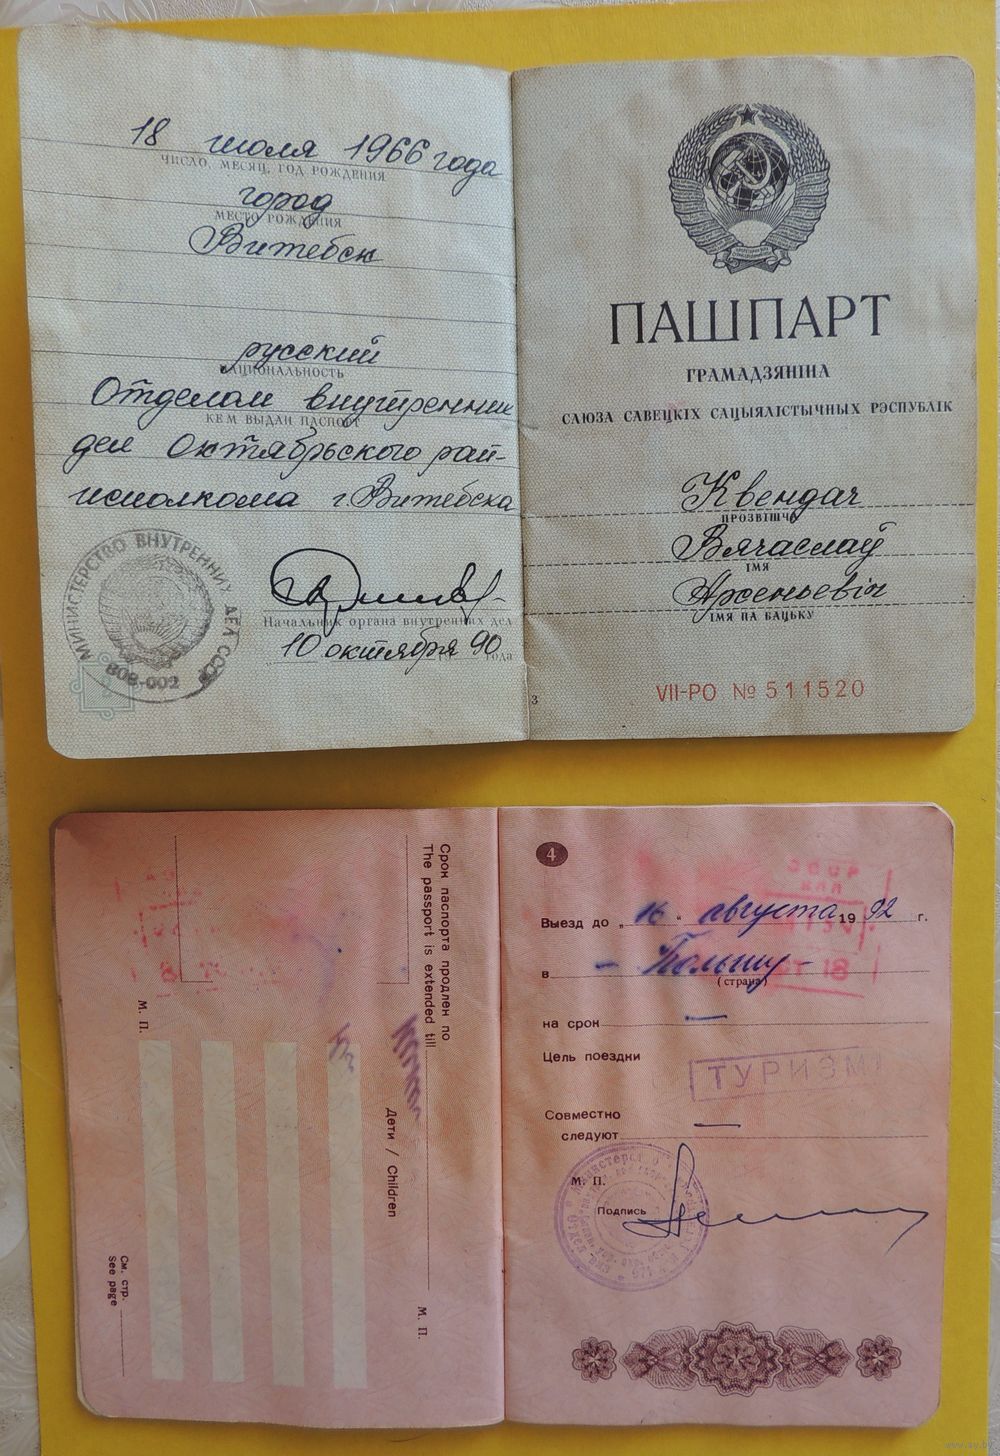 18 июля 1966 года
ЧИСЛО, МЕСЯЦ, ГОД РОЖДЕНИЯ
город
МЕСТО РОЖДЕНИЯ
Витебск
русский
НАЦИОНАЛЬНОСТЬ
Отделом внутренних
КЕМ ВЫДАН ПАСПОРТ
дел Октябрьского рай-
исполкома г. Витебска
МИНИСТЕРСТВО ВНУТРЕННИХ ДЕЛ СССР
808-002
Начальник органа внутренних дел
10 октября 1990 года
3
ПАШПАРТ
ГРАМАДЗЯНІНА
САЮЗА САВЕЦКІХ САЦЫЯЛІСТЫЧНЫХ РЭСПУБЛІК
Квендач
ПРОЗВІШЧА
Вячаслаў
ІМЯ
Арсеньевіч
ІМЯ ПА БАЦЬКУ
VII-РО № 511520
Срок паспорта продлен по
The passport is extended till
М. П.
М. П.
Дети / Children
См. стр.
See page
4
СССР
КПП
Выезд до „16“ августа 1992 г.
в - Польшу -
(страна)
на срок —
Цель поездки
ТУРИЗМ
Совместно
следуют —
М. П.
Подпись
www.ay.by